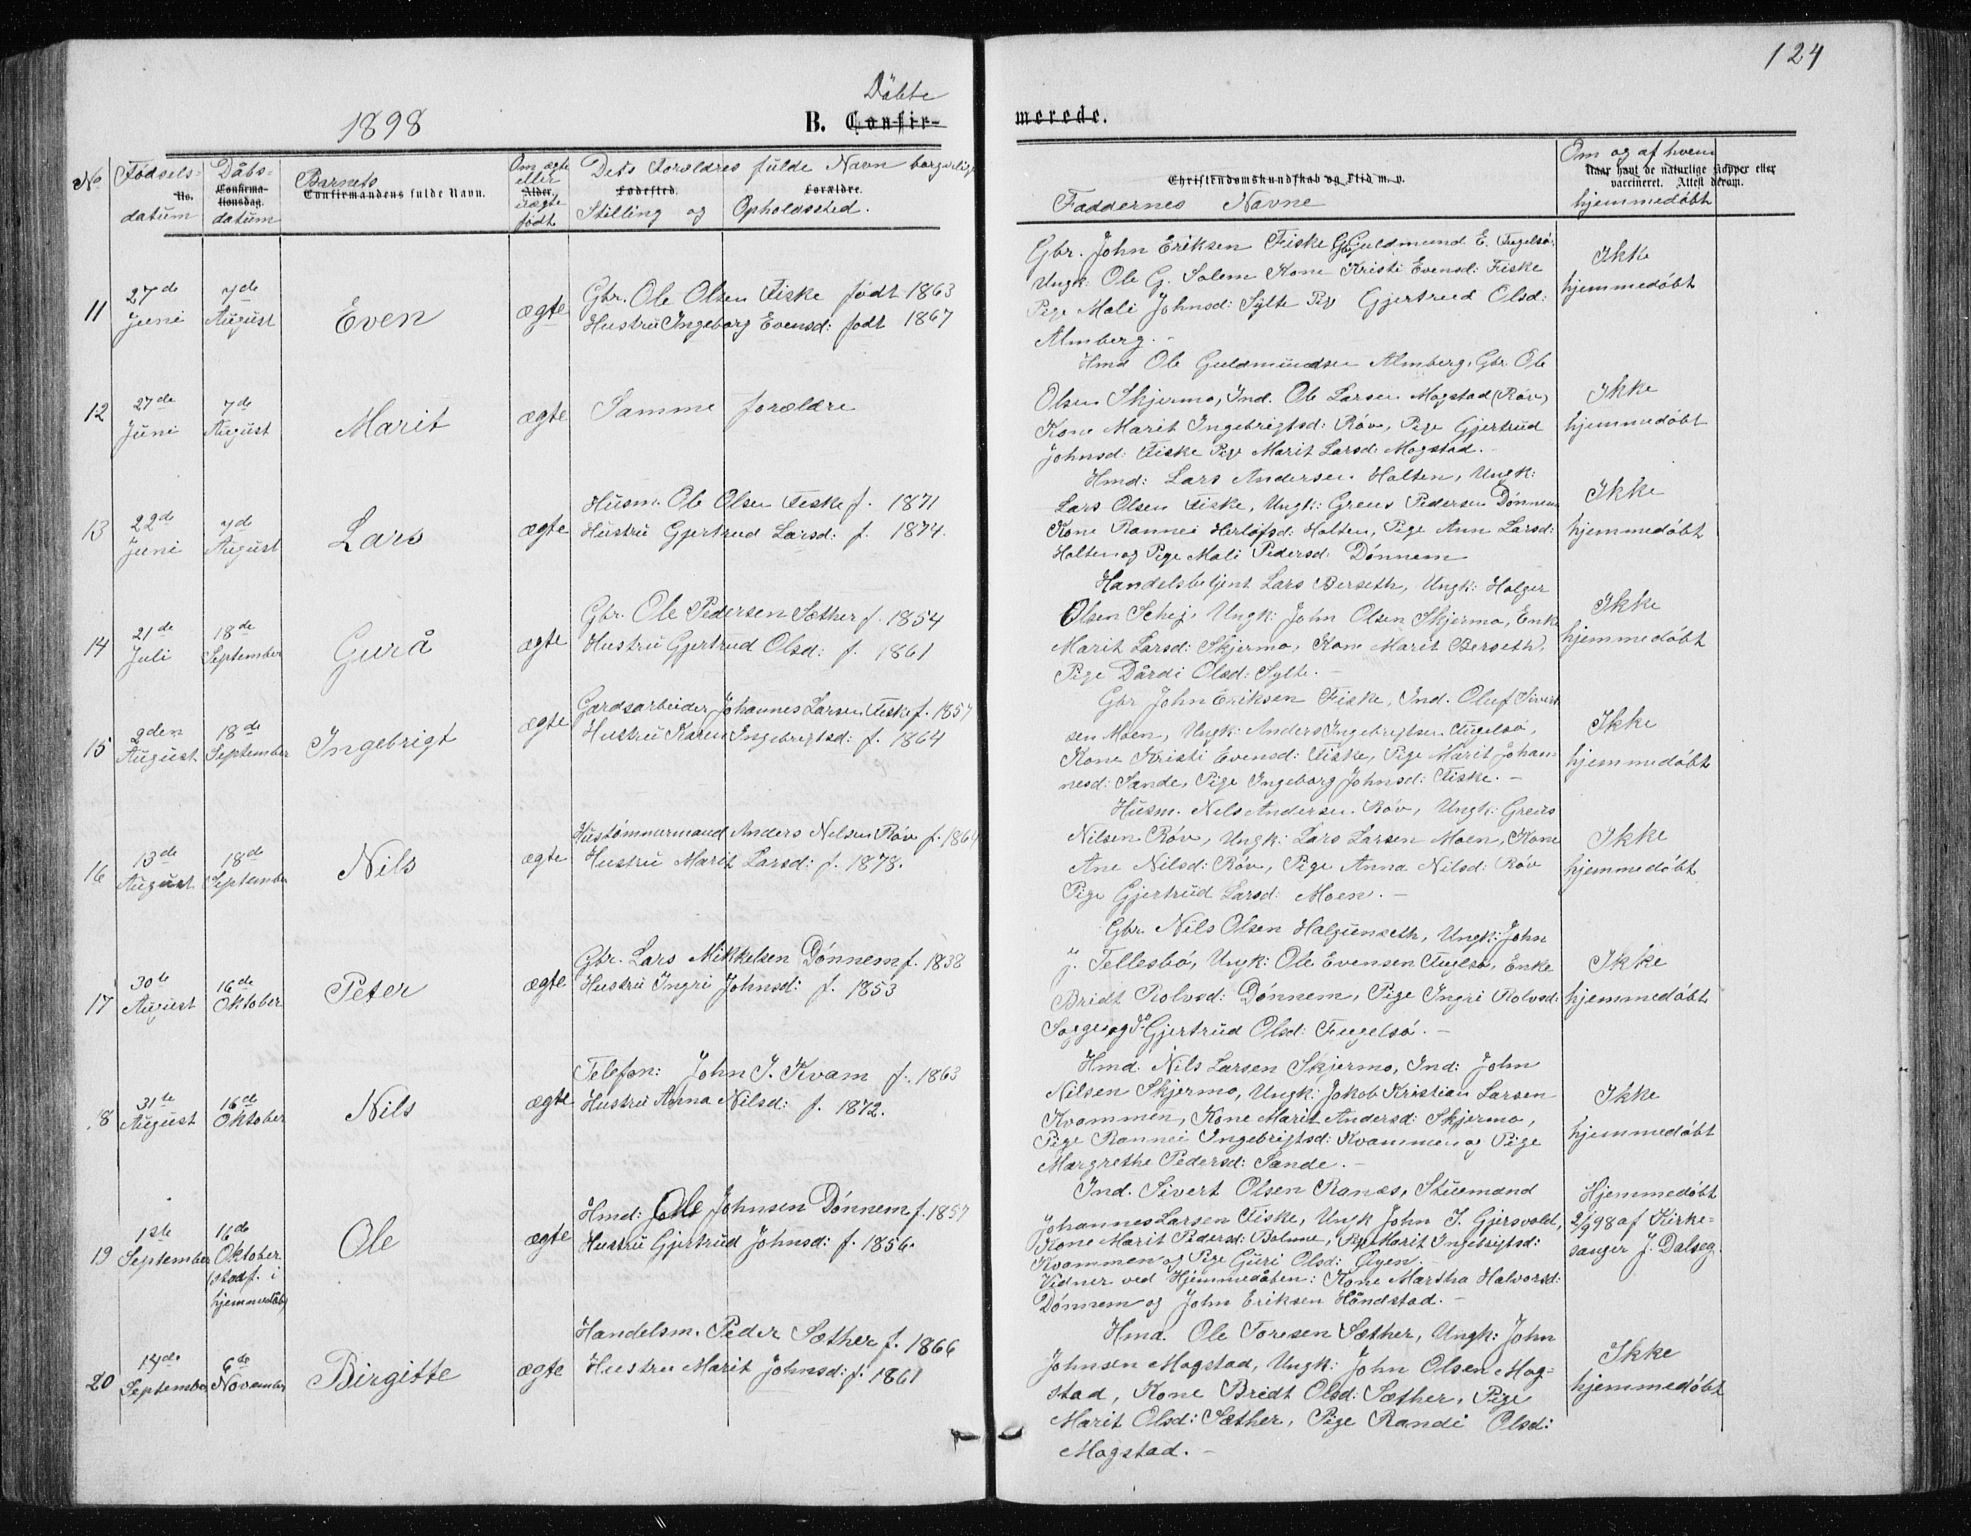 124
1898
Döbte
B. Confir-
merede.
No
Fødsels-
No.
datum
Dåbs-
Confirma-
tionsdag.
datum
Barnets
Confirmandens fulde Navn.
Om ægte
eller
Alder.
uægte
født
Dets Forældres fulde Navn borgerlige
Fødested. Forældre.
Stilling og Opholdssted.
Christendomskundskab og Flid m. v.
Faddernes Navne
Om og af hvem
Naar havt de naturlige Kopper eller
vaccineret. Attest derom.
hjemmedøbt
11
27de
Juni
7de
August
Even
ægte
Gbr. Ole Olsen Fiske født 1863
Hustru Ingeborg Evensd: født 1867
Gbr. John Eriksen Fiske Gbr. Guldmund E. Fugelsø.
Ungk: Ole G. Solem Kone Kristi Evensd: Fiske
Pige Mali Johnsd: Sylte Pige Gjertrud Olsd:
Almberg. -
Ikke
hjemmedøbt
12
27de
Juni
7de
August
Marit
ægte
Samme forældre
Hmd Ole Guldmundsen Almberg, Gbr. Ole
Olsen Skjermo, Ind. Ole Larsen Mogstad (Røv)
Kone Marit Ingebrigtsd: Røv, Pige Gjertrud
Johnsd: Fiske Pige Marit Larsd: Mogstad. -
Ikke
hjemmedøbt
13
22de
Juni
7de
August
Lars
ægte
Husm. Ole Olsen Fiske f. 1871
Hustru Gjertrud Larsd: f. 1874.
Hmd: Lars Andersen Holten, Ungk:
Lars Olsen Fiske, Ungk: Greus Pedersen Dønnem
Kone Rannei Herlofsd: Holten, Pige Ann Larsd:
Holten og Pige Mali Pedersd: Dønnem
Ikke
hjemmedøbt
14
21de
Juli
18de
September
Gurå
ægte
Gbr. Ole Pedersen Sæther f. 1854
Hustru Gjertrud Olsd: f. 1861
Handelsbetjent Lars Berseth, Ungk: Holger
Olsen Schej, Ungk: John Olsen Skjermo, Enke
Marit Larsd: Skjermo, Kone Marit Berseth,
Pige Dårdi Olsd: Sylte. -
Ikke
hjemmedøbt
15
9den
August
18de
September
Ingebrigt
ægte
Gardsarbeider Johannes Larsen Fiske f. 1857
Hustru Karen Ingebrigtsd: f. 1864
Gbr John Eriksen Fiske, Ind. Oluf Sivert
sen Moen, Ungk: Anders Ingebrigtsen Fugelsø,
Kone Kristi Evensd: Fiske, Pige Marit Johan-
nesd: Sande, Pige Ingeborg Johnsd: Fiske. -
Ikke
hjemmedøbt
16
13de
August
18de
September
Nils
ægte
Hustømmermand Anders Nilsen Røv f. 1864
Hustru Marit Larsd: f. 1878.
Husm. Nils Andersen Røv, Ungk: Greus
Nilsen Røv, Ungk: Lars Larsen Moen, Kone
Ane Nilsd: Røv, Pige Anna Nilsd: Røv
Pige Gjertrud Larsd: Moen. -
Ikke
hjemmedøbt
17
30te
August
16de
Oktober
Peter
ægte
Gbr. Lars Mikkelsen Dønnem f. 1838
Hustru Ingri Johnsd: f. 1853
Gbr. Nils Olsen Halgunseth, Ungk: John
J. Tellesbø, Ungk: Ole Evensen Fuglsø, Enke
Bridt Rolvsd: Dønnem, Pige Ingri Rolvsd:
Sogge og Do Gjertrud Olsd: Fugelsø. -
Ikke
hjemmedøbt
18
31te
August
16de
Oktober
Nils
ægte
Telefon: John J. Kvam f. 1863
Hustru Anna Nilsd: f. 1872.
Hmd. Nils Larsen Skjermo, Ind: John
Nilsen Skjermo, Ungk: Jakob Kristian Larsen
Kvammen, Kone Marit Andersd: Skjermo,
Pige Rannei Ingebrigtsd: Kvammen og Pige
Margrethe Pedersd: Sande. -
Ikke
hjemmedøbt
19
1ste
September
16de
Oktober
(stadf. i
hjemmedåb)
Ole
ægte
Hmd: Ole Johnsen Dønnem f. 1857
Hustru Gjertrud Johnsd: f. 1856.
Ind. Sivert Olsen Ranæs, Stuemand
Johannes Larsen Fiske, Ungk John J. Gjersvold,
Kone Marit Pedersd: Bolme, Pige Marit Ingebrigtsd:
Kvammen og Pige Guri Olsd: Øyen.
Vidner ved Hjemmedåben: Kone Martha Halvorsd:
Dønnem og John Eriksen Håndstad. -
Hjemmedøbt
2/9 98 af Kirke-
sanger J. Dalseg.
20
14de
September
6te
November
Birgitte
ægte
Handelsm. Peder Sæther f. 1866
Hustru Marit Johnsd: f. 1861
Hmd. Ole Toresen Sæther, Ungk: John
Johnsen Mogstad, Ungk: John Olsen Mog-
stad, Kone Bridt Olsd: Sæther, Pige
Marit Olsd: Sæther, Pige Randi Olsd:
Mogstad. -
Ikke
hjemmedøbt